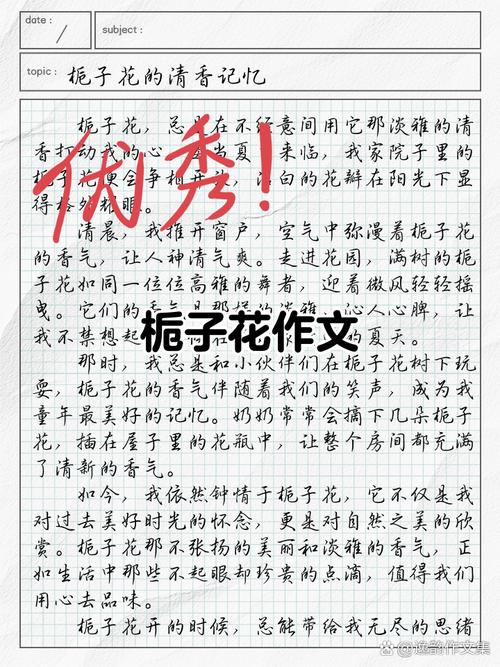 date:
subject:
topic: 栀子花的清香记忆
栀子花，总是在不经意间用它那淡雅的清
香打动我的心 当夏 来临，我家院子里的
栀子花便会争相开 白的花瓣在阳光下显
得格外耀眼。
优秀!
清晨，我推开窗户，空气中弥漫着栀子花
的香气，让人神清气爽。走进花园，满树的栀
子花如同一位位高雅的舞者，迎着微风轻轻摇
曳。它们的香气是那样的淡雅、沁人心脾，让
我不禁想起 在 的夏天。
栀子花作文
那时，我总是和小伙伴们在栀子花树下玩
耍，栀子花的香气伴随着我们的笑声，成为我
童年最美好的记忆。奶奶常常会摘下几朵栀子
花，插在屋子里的花瓶中，让整个房间都充满
了清新的香气。
如今，我依然钟情于栀子花，它不仅是我
对过去美好时光的怀念，更是对自然之美的欣
赏。栀子花那不张扬的美丽和淡雅的香气，正
如生活中那些不起眼却珍贵的点滴，值得我们
用心去品味。
栀子花开的时候，总能带给我无尽的思绪
逸韵作文集